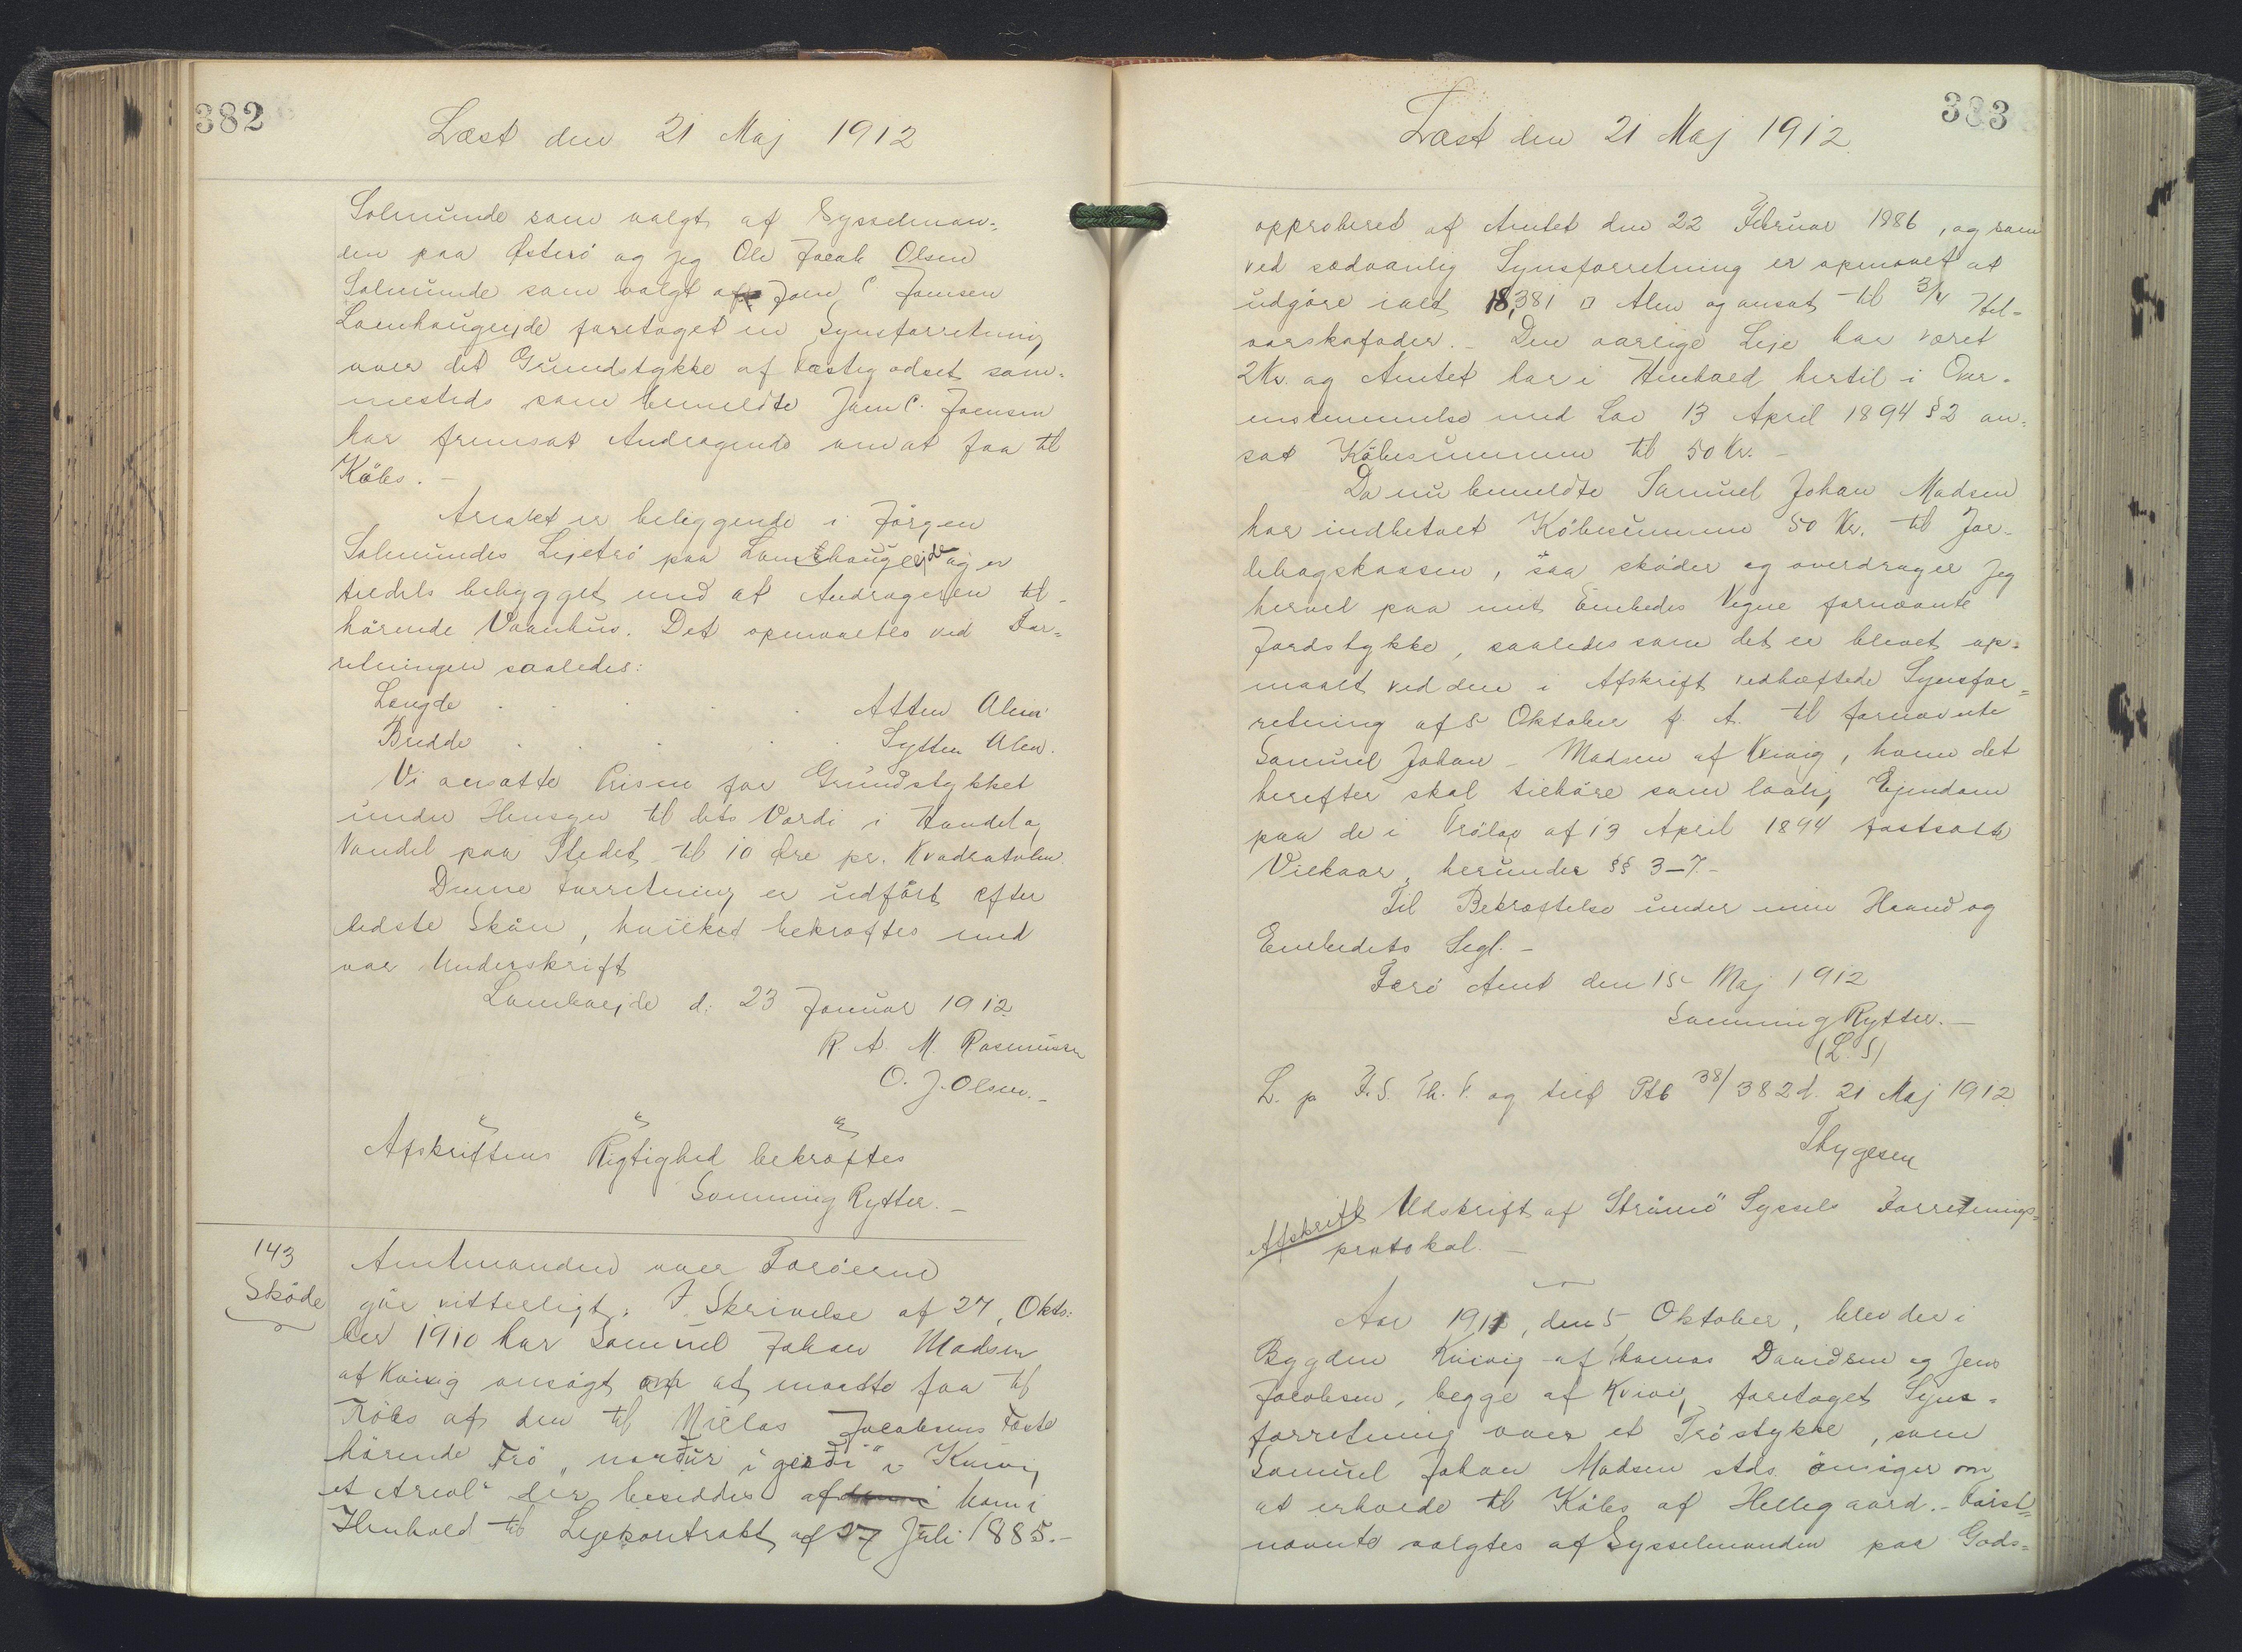 382
Læst den 21 Maj 1912
Solmunde som valgt af Sysselman-
den paa Østerö og jeg Ole Jacob Olsen
Solmunde som valgt af Joen C Joensen
Lamhaugejde foretaget en Synsforretning
over det Grundstykke af Fæstegodset sam-
mesteds som bemeldte Joen C. Joensen
har fremsat Andragende om at faa til
Köbs. -
Arealet er beliggende i Jörgen
Solmundes Lejetrö paa Lambhaugejde og er
tildels bebygget med et Andrageren til-
hörende Vaanhus. Det opmaaltes ved For-
retningen saaledes:
Længde . . . . Atten Alen
Bredde . . . . Sytten Alen.
Vi ansatte Prisen for Grundstykket
under Hensyn til dets Værdi i Handel og
Vandel paa Stedet til 10 Øre pr. Kvadratalen.
Denne Forretning er udfört efter
bedste Skön, hvilket bekræftes med
vor Underskrift
Lambaejde d: 23 Januar 1912.
R. A. M. Rasmussen
O. J. Olsen. -
Afskriftens Rigtighed bekræftes
Svenning Rytter. -
143
Sköde
Amtmanden over Færöerne
gör vitterligt: I Skrivelse af 27, Okto-
ber 1910 har Samuel Johan Madsen
af Kvivig ansögt om at maatte faa til
Köbs af den til Niclas Jacobsens Fæste
hörende Trö "nordur i gerdi" i Kvivig
et Areal der besiddes af ham i
Henhold til Lejekontrakt af 27 Juli 1885.-
383
Læst den 21 Maj 1912.
approberet af Amtet den 22 Februar 1886, og som
ved sædvanlig Synsforretning er opmaalt at
udgöre ialt 18,381 □ Alen og ansat til 3/4 Hel-
aarskofoder. - Den aarlige Leje har været
2 Kr. og Amtet har i Henhold hertil i Over-
ensstemmelse med Lov 13 April 1894 § 2 an-
sat Köbesummen til 50 Kr. -
Da nu bemeldte Samuel Johan Madsen
har indbetalt Köbesummen 50 Kr. til Jor-
debogskassen, saa sköder og overdrager jeg
herved paa mit Embedes Vegne fornævnte
Jordstykke, saaledes som det er blevet op-
maalt ved den i Afskrift vedhæftede Synsfor-
retning af 5 Oktober f. A. til fornævnte
Samuel Johan Madsen af Kvivig, hvem det
herefter skal tilhöre som lovlig Ejendom
paa de i Trölov af 13 April 1894 fastsatte
Vilkaar, herunder §§ 3-7.-
Til Bekræftelse under min Haand og
Embedets Segl. -
Færö Amt den 15 Maj 1912
Svenning Rytter. -
(L. S)
L. p F. S. Th. V. og tilf Ptk 38/382 d. 21 Maj 1912
Thygesen
Afskrift
Udskrift af Strömö Syssels Forretnings-
protokol. -
Aar 1911, den 5 Oktober, blev der i
Bygden Kvivig af Thomas Davidsen og Jens
Jacobsen, begge af Kvivig foretaget Syns-
forretning over et Tröstykke, som
Samuel Johan Madsen stds. ansöger om
at erhverve til Köbs af Hellegaard. - Först-
nævnte valgtes af Sysselmanden paa Gods-